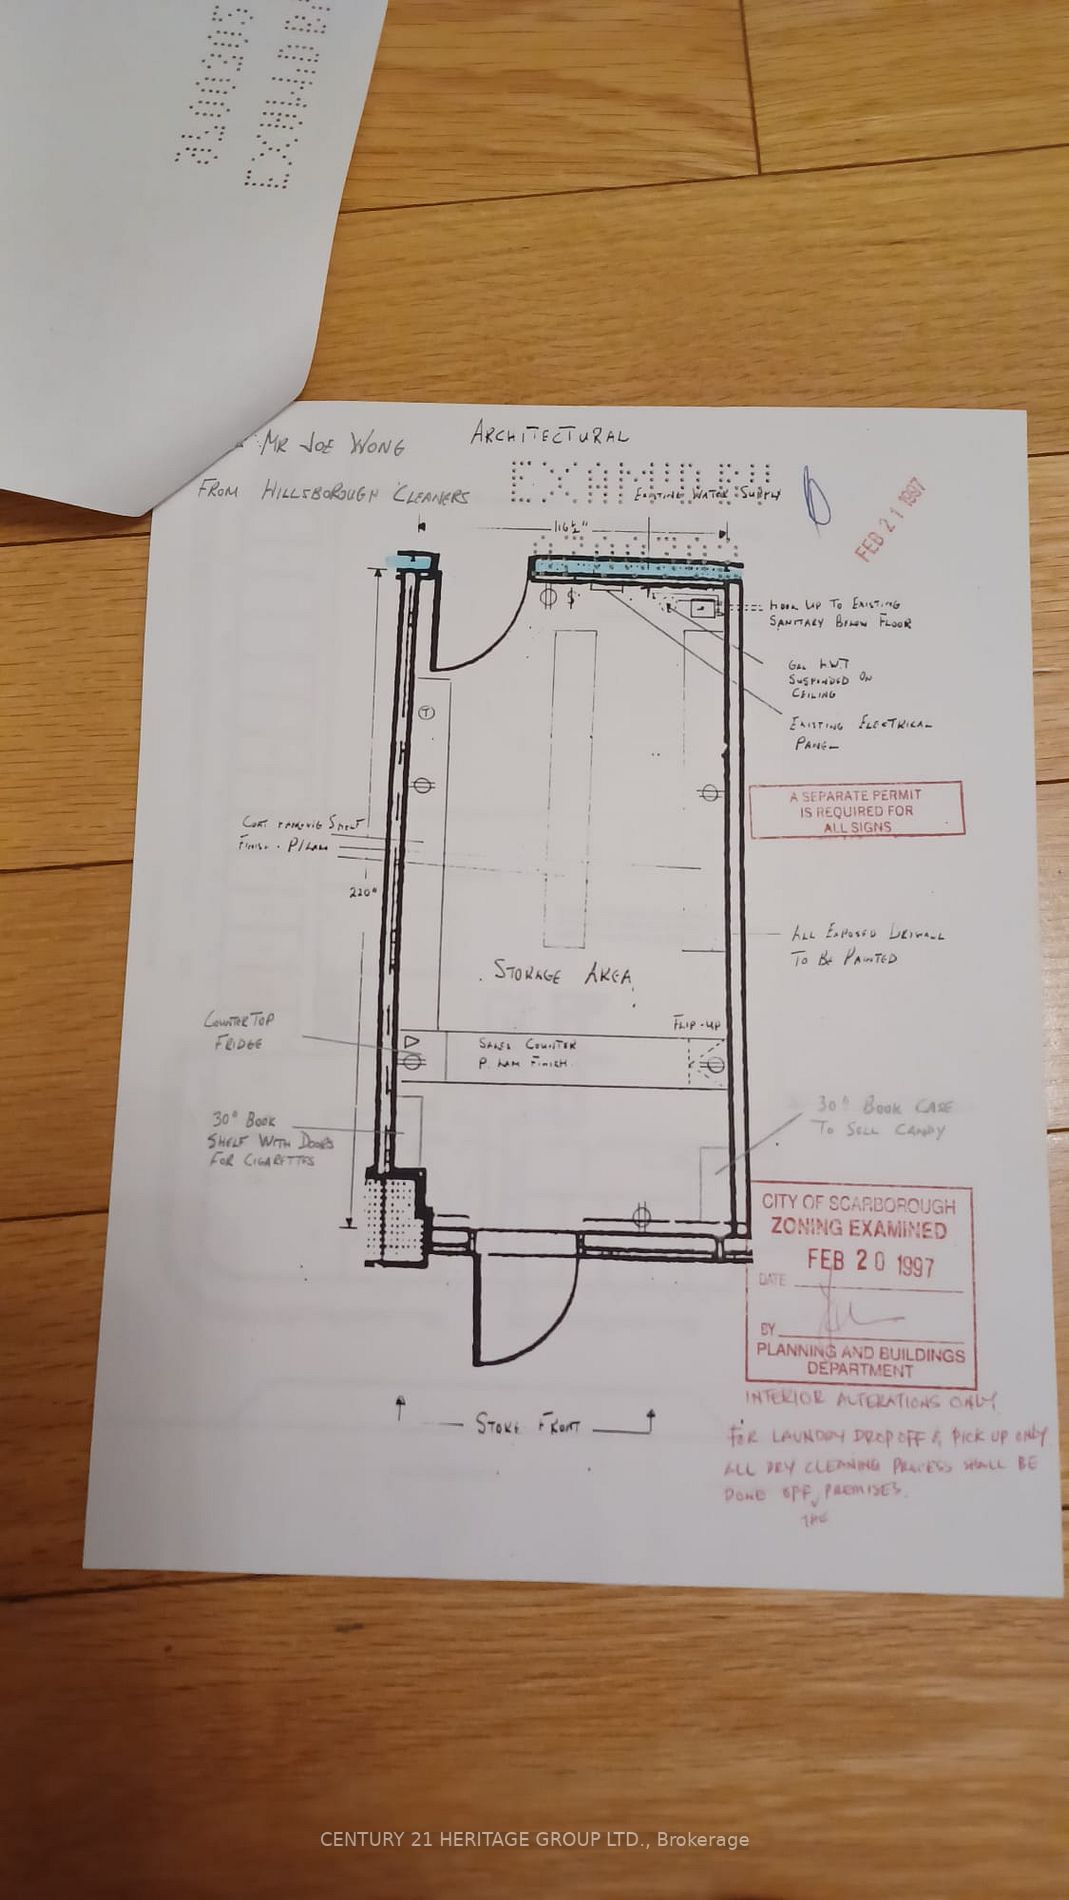 EXAM'D BY
MR JOE WONG
ARCHITECTURAL
FROM HILLSBOROUGH CLEANERS
EXAM'D BY
EXISTING WATER SUPPLY
FEB 21 1997
116½"
HOOK UP TO EXISTING
SANITARY BELOW FLOOR
GAL H.W.T
SUSPENDED ON
CEILING
EXISTING ELECTRICAL
PANEL
T
A SEPARATE PERMIT
IS REQUIRED FOR
ALL SIGNS
SHELF
FINISH - P/LAM
220"
ALL EXPOSED DRYWALL
TO BE PAINTED
STORAGE AREA
COUNTER TOP
FRIDGE
FLIP-UP
SALES COUNTER
P. LAM FINISH.
30" BOOK
SHELF WITH DOORS
FOR CIGARETTES
30" BOOK CASE
TO SELL CANDY
CITY OF SCARBOROUGH
ZONING EXAMINED
FEB 20 1997
DATE
BY
PLANNING AND BUILDINGS
DEPARTMENT
STORE FRONT
INTERIOR ALTERATIONS ONLY
FOR LAUNDRY DROP OFF & PICK UP ONLY
ALL DRY CLEANING PROCESS SHALL BE
DONE OFF PREMISES.
THE
CENTURY 21 HERITAGE GROUP LTD., Brokerage